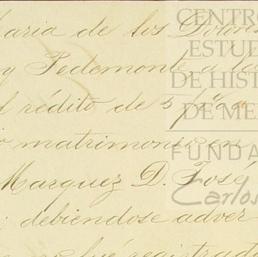 Maria de los Dolores
y Pedemonte, a la
rédito de 3 p
matrimonio en
Marquez D. José
debiendose adver
fué registrada
CENTRO
ESTUD
DE HIST
DE ME
FUNDA
Carlos